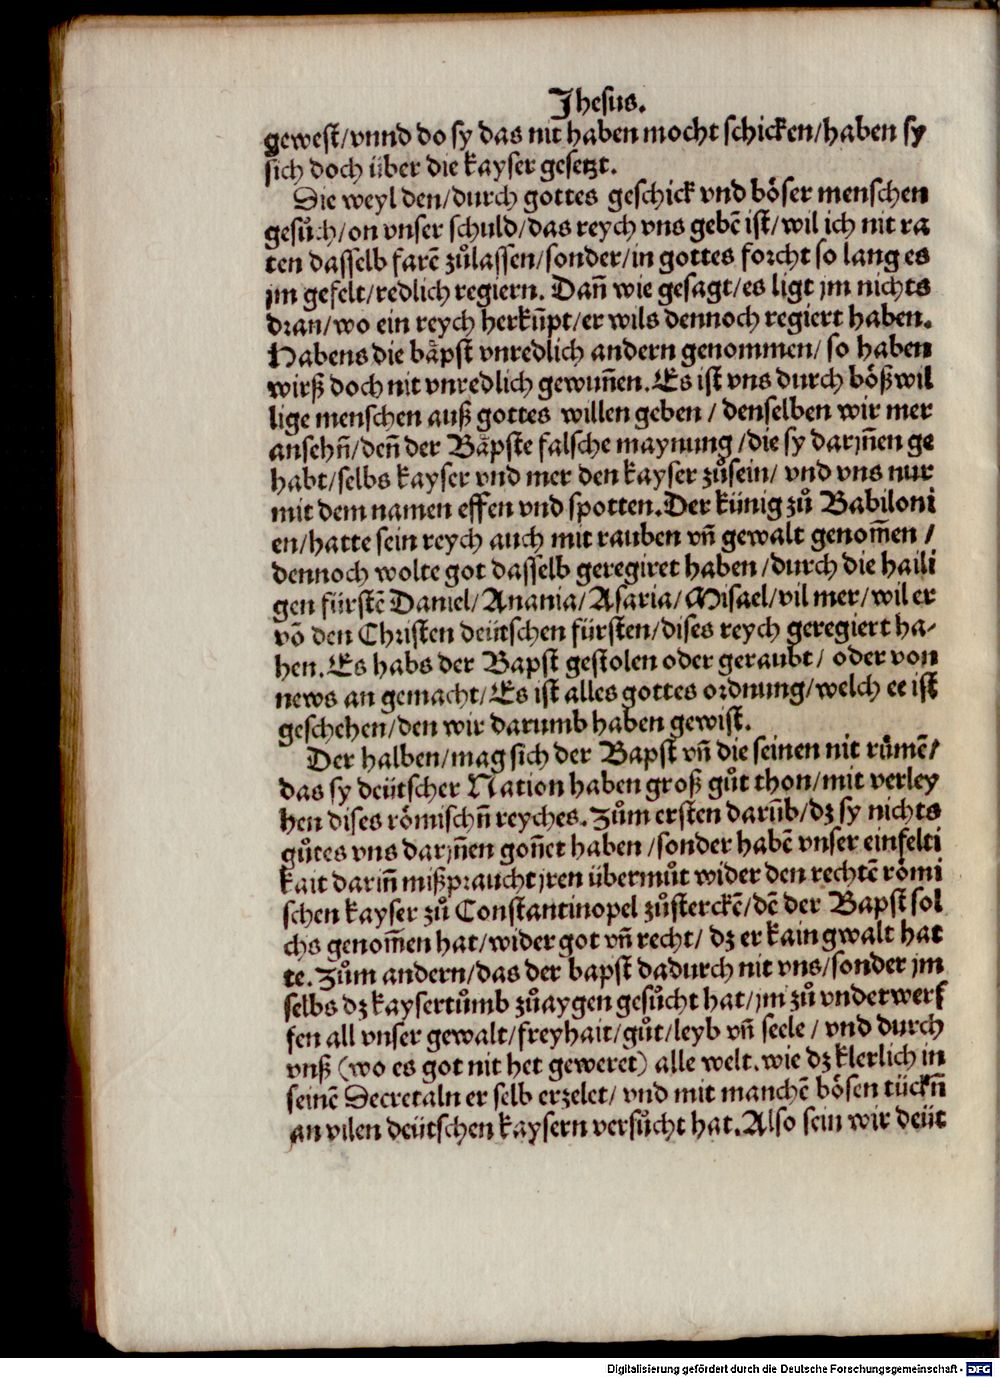 Jhesus.
gewest/vnnd do sy das nit haben mocht schicken/haben sy
sich doch über die kayser gesetzt.
Die weyl den/durch gottes geschick vnd böser menschen
gesůch/on vnser schuld/das reych vns gebē ist/wil ich nit ra
ten dasselb farē zůlassen/sonder/in gottes forcht so lang es
jm gefelt/redlich regiern. Dañ wie gesagt/es ligt jm nichts
dran/wo ein reych herkũpt/er wils dennoch regiert haben.
Habens die bäpst vnredlich andern genommen/ so haben
wirß doch nit vnredlich gewuñen. Es ist vns durch bößwil
lige menschen auß gottes willen geben / denselben wir mer
ansehñ/deñ der Bäpste falsche maynung /die sy darjñen ge
habt/selbs kayser vnd mer den kayser zůsein/ vnd vns nur
mit dem namen effen vnd spotten. Der künig zů Babiloni
en/hatte sein reych auch mit rauben vñ gewalt genom̃en /
dennoch wolte got dasselb geregiret haben /durch die haili
gen fürstē Daniel/Anania/Asaria/Misael/vil mer/wil er
võ den Christen deütschen fürsten/dises reych geregiert ha-
hen. Es habs der Bapst gestolen oder geraubt/ oder von
news an gemacht/Es ist alles gottes ordnung/welch ee ist
geschehen/den wir darumb haben gewist.
Der halben/mag sich der Bapst vñ die seinen nit rümē/
das sy deütscher Nation haben groß gůt thon/mit verley
hen dises römischñ reyches. Zům ersten darũb/dz sy nichts
gůtes vns darjñen goñet haben /sonder habē vnser einfelti
kait dariñ mißpraucht jren übermůt wider den rechtē römi
schen kayser zů Constantinopel zůsterckē/dē der Bapst sol
chs genom̃en hat/wider got vñ recht/ dz er kain gwalt hat
te. Zům andern/das der bapst dadurch nit vns/sonder jm
selbs dz kaysertůmb zůaygen gesůcht hat/jm zů vnderwerf
fen all vnser gewalt/freyhait/gůt/leyb vñ seele / vnd durch
vnß (wo es got nit het geweret) alle welt. wie dz klerlich in
seinē Decretaln er selb erzelet/ vnd mit manchē bösen tückñ
an vilen deütschen kaysern versůcht hat. Also sein wir deüt
Digitalisierung gefördert durch die Deutsche Forschungsgemeinschaft - DFG